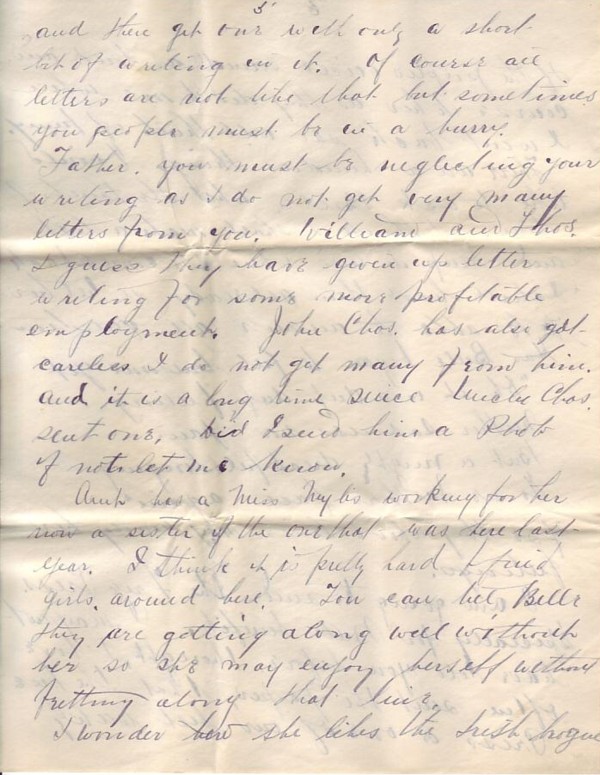 3
and there get one with only a short
bit of writing in it. Of course all
letters are not like that but sometimes
you people must be in a hurry.
Father. you must be neglecting your
writing as I do not get very many
letters from you. William and Thos.
I guess they have given up letter
writing for some more profitable
employment. John Chas. has also got
careless I do not get many from him.
and it is a long time since Uncle Chas.
sent one, Did I send him a Photo
if not let me know.
Aunt has a Miss working for her
now a sister of the one that was here last
year. I think it is pretty hard to find
girls. around here. You can bet Belle
they are getting along well without
her so she may enjoy herself without
fretting along that line.
I wonder how she likes the Irish brogue